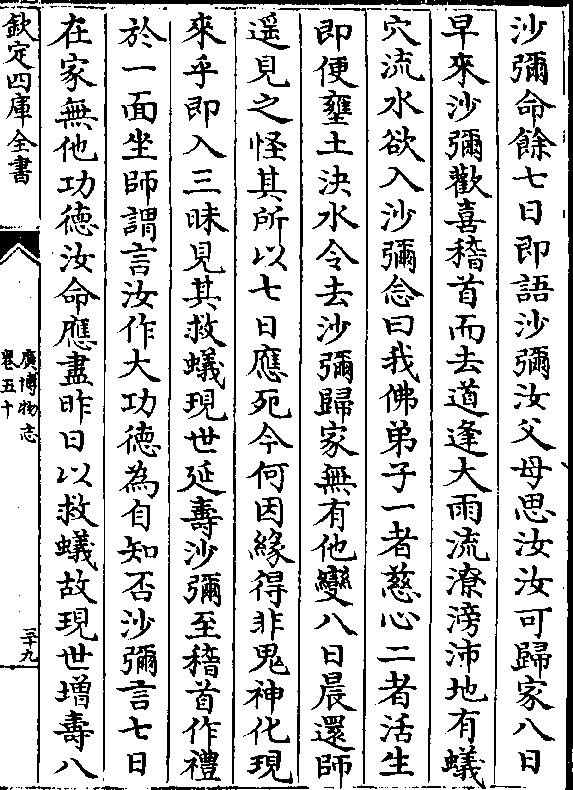 沙彌命餘七日即語沙彌汝父母思汝汝可歸家八日
早來沙彌歡喜稽首而去道逢大雨流潦滂沛地有蟻
穴流水欲入沙彌念曰我佛弟子一者慈心二者活生
即便壅土決水令去沙彌歸家無有他變八日晨還師
遥見之怪其所以七日應死今何因緣得非鬼神化現
來乎即入三昧見其救蟻現世延壽沙彌至稽首作禮
於一面坐師謂言汝作大功德為自知否沙彌言七日
在家無他功德汝命應盡昨日以救蟻故現世增壽八
欽定四庫全書
廣博物志
卷五十
三十九